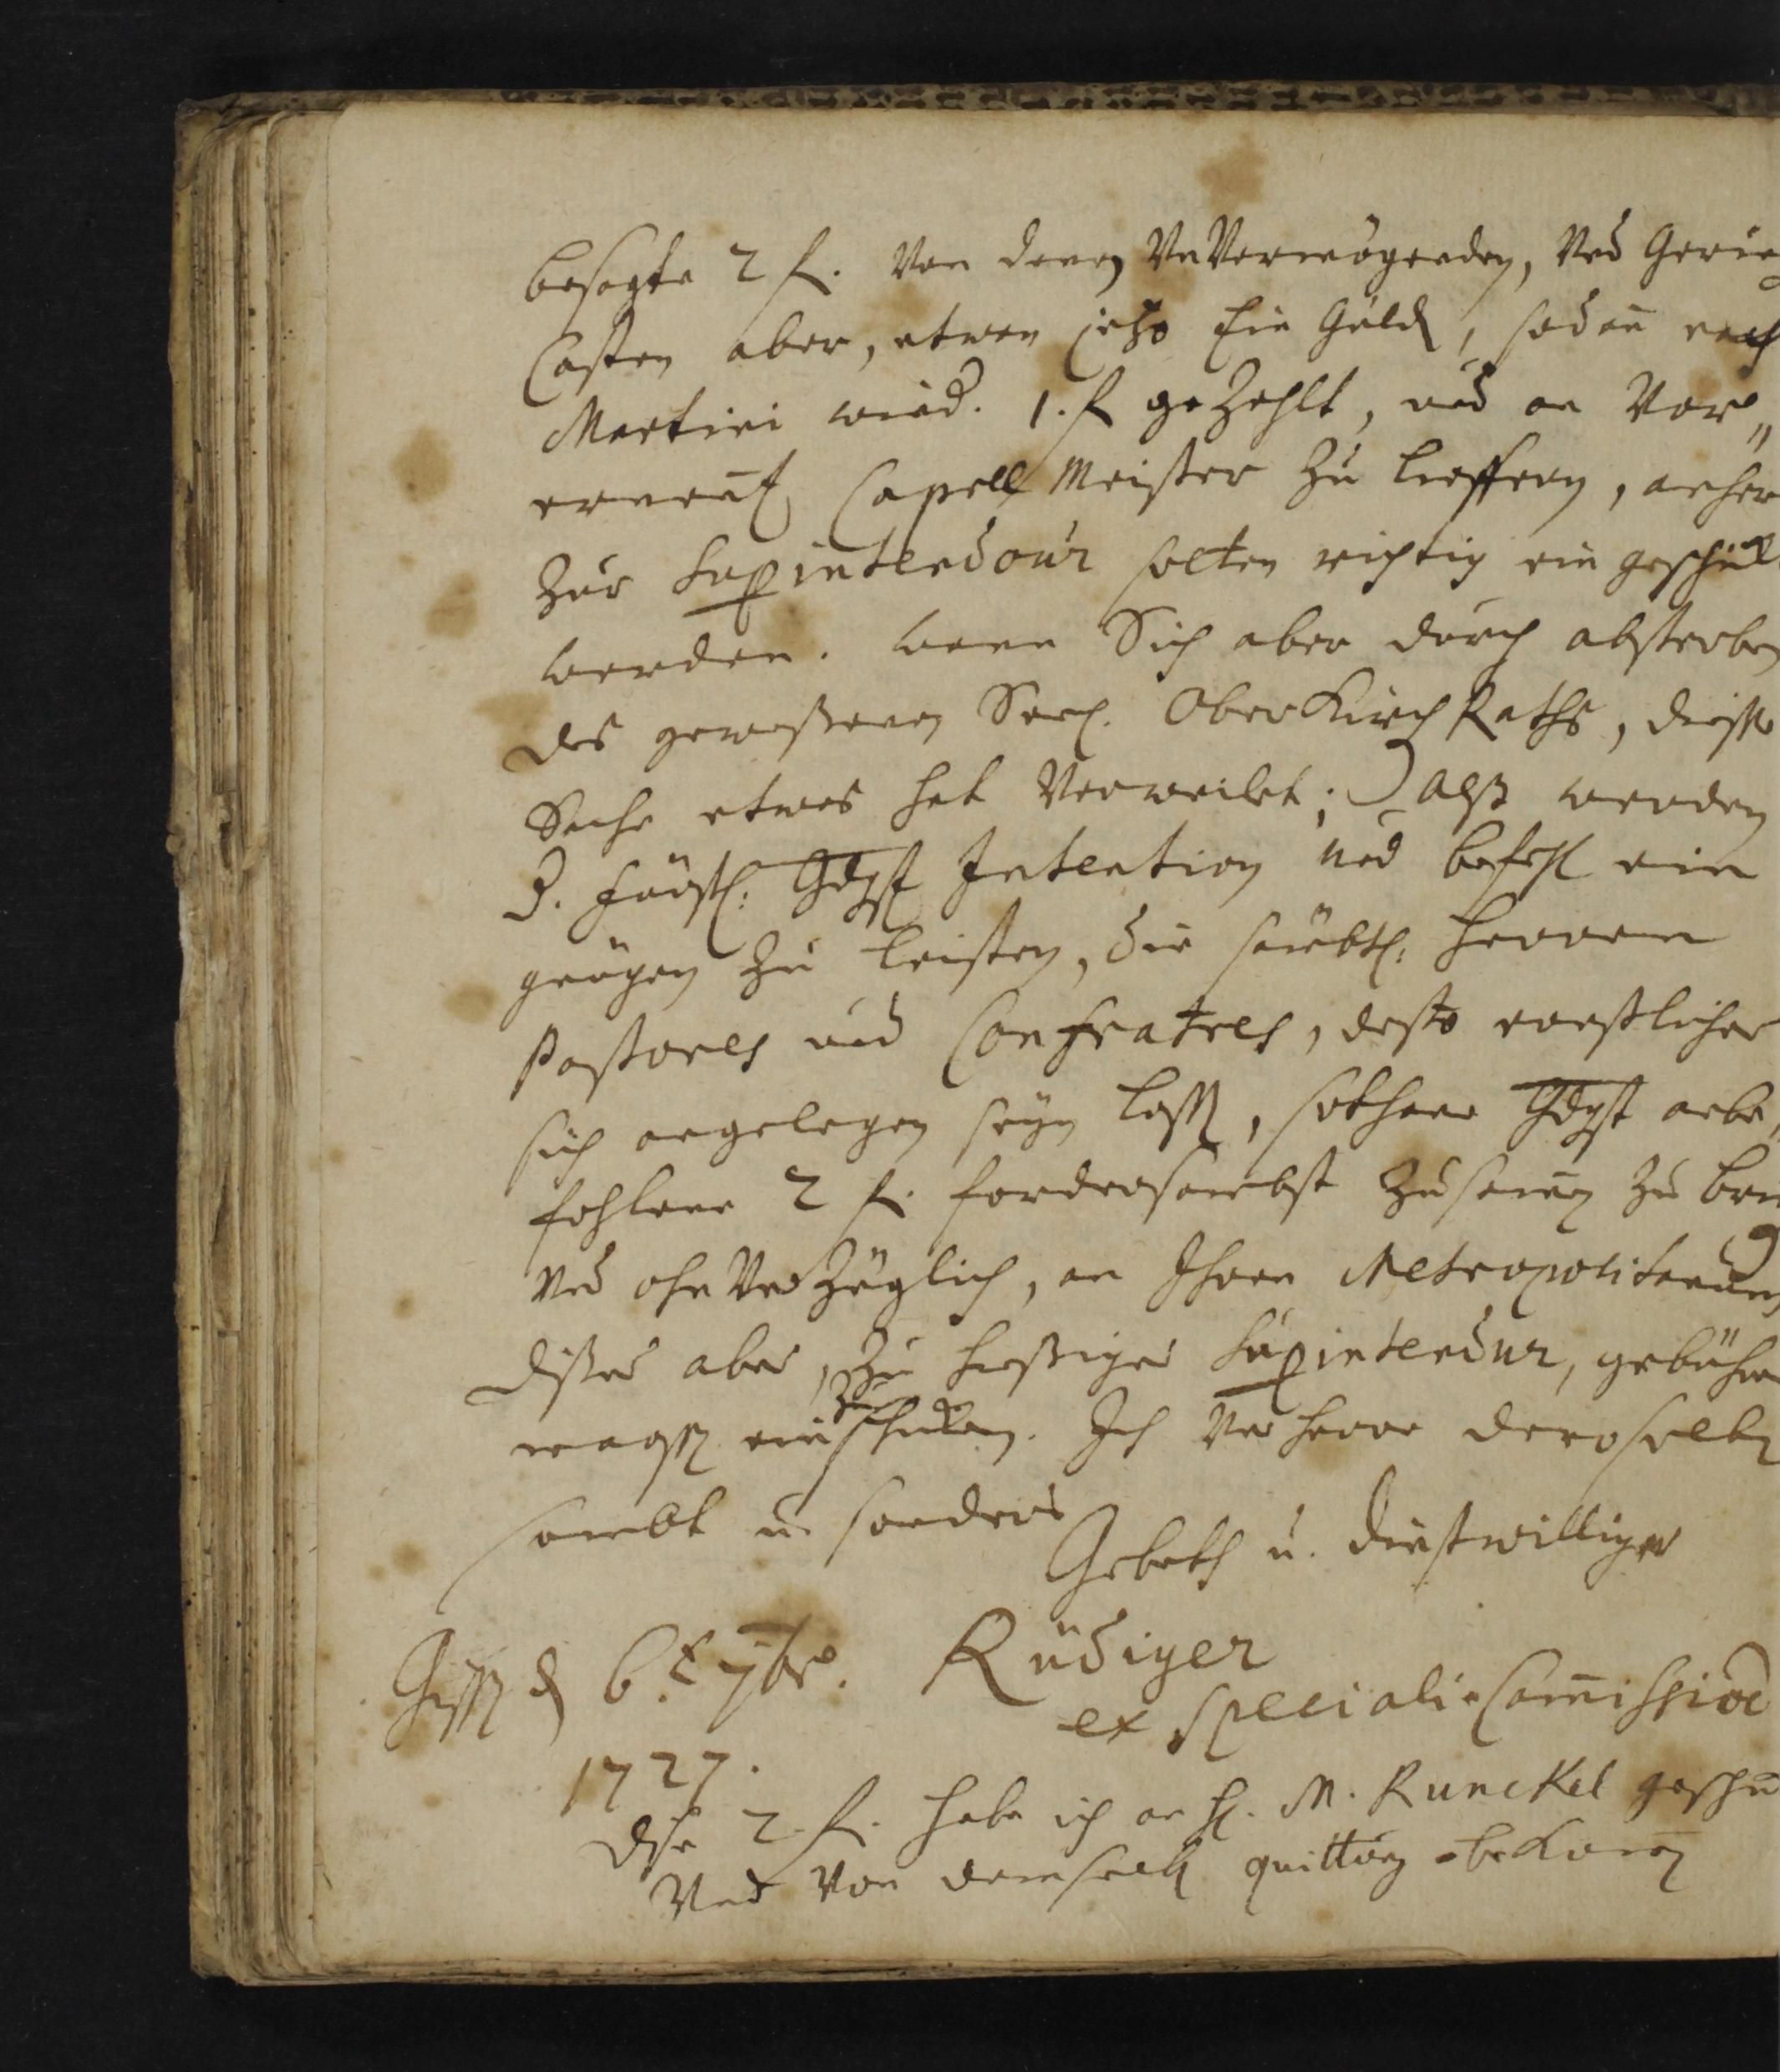 besagte 2 f. Von denen UnVermögenden, Und Gerin
Casten aber, etwan jetzo Ein Güld, sodañ nach
Martini wied. 1. f gezehlt, und an Vor„
ernent Capell Meister zu lieffern, anher
Zur Supintendour solten richtig ein geschickt
werden. wann Sich aber durch absterben
des geweßenen Seel. OberKirchRaths, diesse
Sache etwas hat Verweilet; Alß werden
D. Fürstl: Gdgst Intention und befehl ein
genügen zu leisten, die sämbtl: Herren
Pastores und Confratres, desto ernstlicher
sich angelegen seyn lassen, sothane Gdgst anbe„
fohlene 2 f. fordersambst zusamen zu brin
Und ohnVerzüglich, an Ihren Metropolitanum
dißer aber, zu hießiger Supintendur, gebühren
masßen ein zu schicken. Ich Verharre deroselben
sambt u. sonders
Gebeth u. dinstwilliger
Gissen d 6.t 7br. Rüdiger
ex speciali Com̄issione
1727.
Diße 2. f. habe ich an H. M. Runckel geschickt
Und Von demselben quittung bekomen